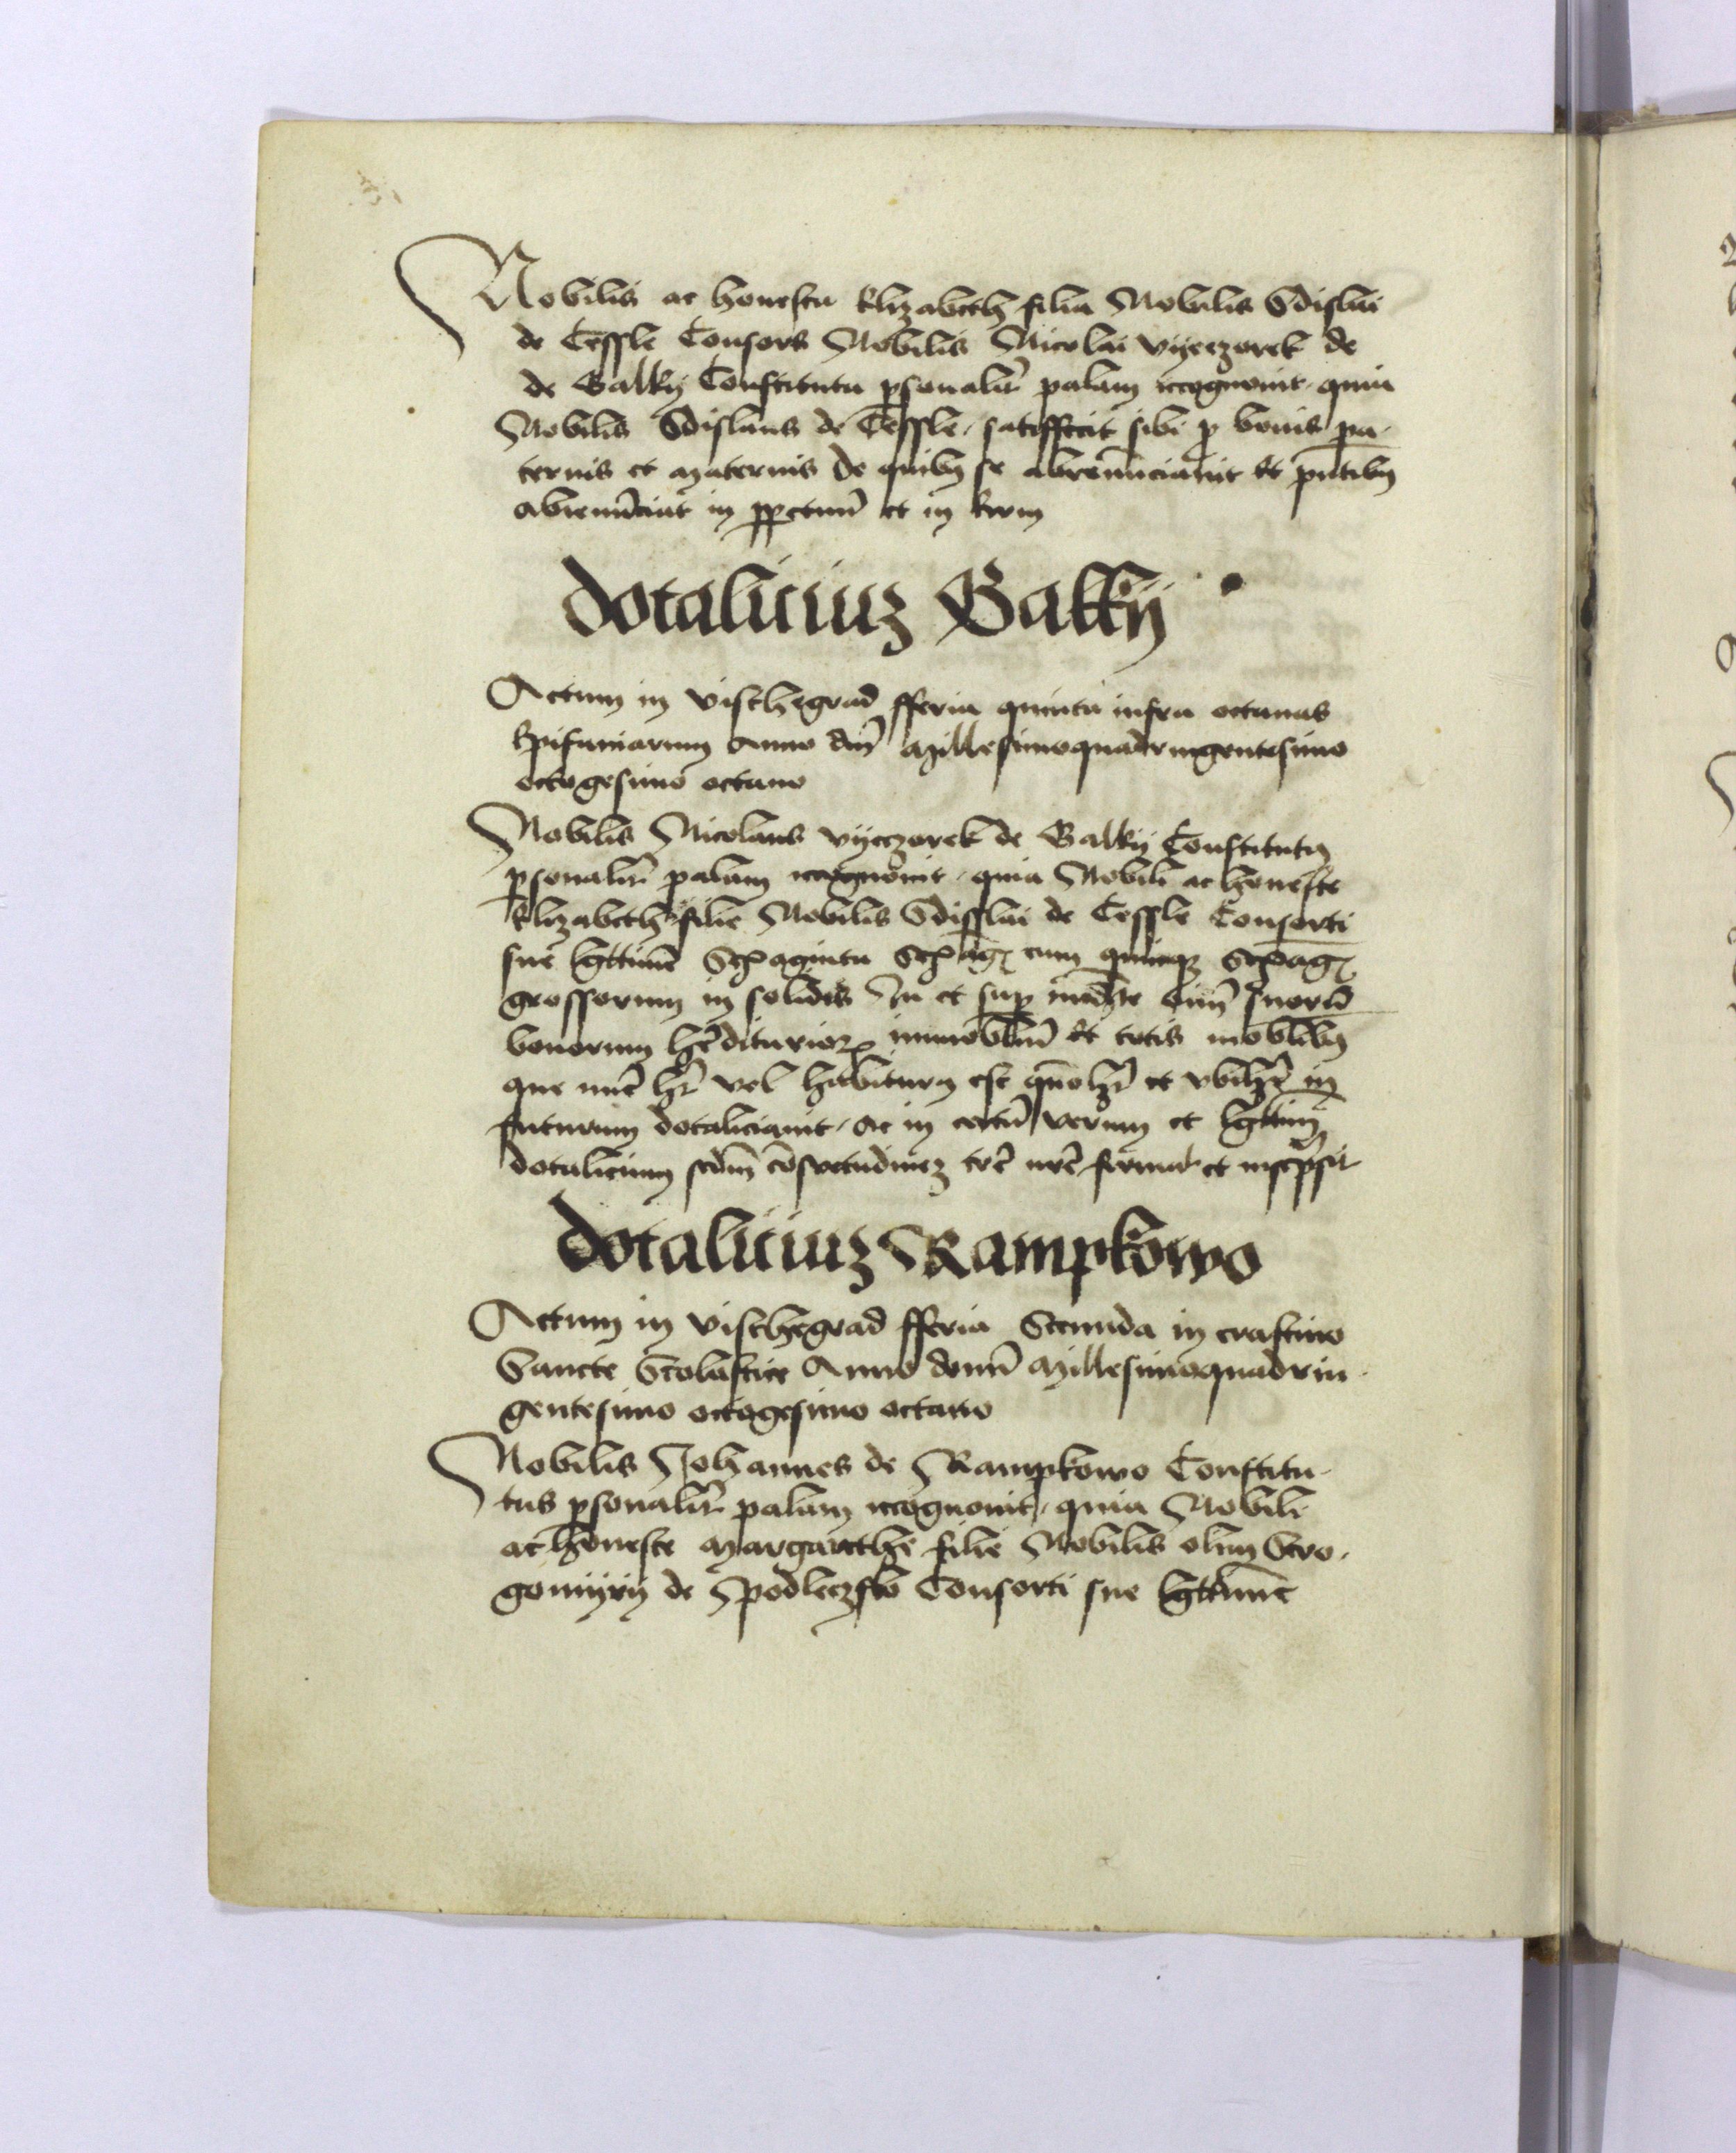 Nobilis ac honesta Elizabeth filia Nobilis Sdislai
de Cessle Consors Nobilis Nicolai vyeczorek de
de Balky Constituta psonalit palam recognovit quia
Nobilis Sdislaus de Cessle satisffecit sibi p bonis pa
ternis et maternis de quibus se abrenunciavit Et pntibus
abrenunciat in ppetuu et in
dotaliciuz Balky
Actum in vischegrad fferia quinta infra octavas
Epifaniarum Anno dni Millesimoquadringentesimo
octogesimo octavo
Nobilis Nicolaus vyeczorek de Balky Constitutus
psonalit palam recognovit quia Nobili ac honeste
Elizabeth filie Nobilis Sdisslai de Cessle Consorti
sue lgttime Sexaginta Sexag cum quinque Sexag
grossorum in solidis In et sup medie oim suoru
bonorum hrditarior immobilium Et totis mobilibus
que nuc ht vel habiturus est quolzt et ubilzt in
futurum dotaliciavit ac in certu verum et lgttim
dotalicium scdm cosvetudinez tre nre firmat et inscpsit
dotaliciuz Rampkowo
Actum in vischegrad fferia Secunda in crastino
Sancte Scolastice Anno domi Millesimoquadrin
gentesimo octogesimo octavo
Nobilis Johannes de Rampkowo Constitu
tus psonalit palam recognovit quia Nobili
ac honeste Margarethe filie Nobilis olim Stro
gomyry de Podleczsko Consorti sue lgttime